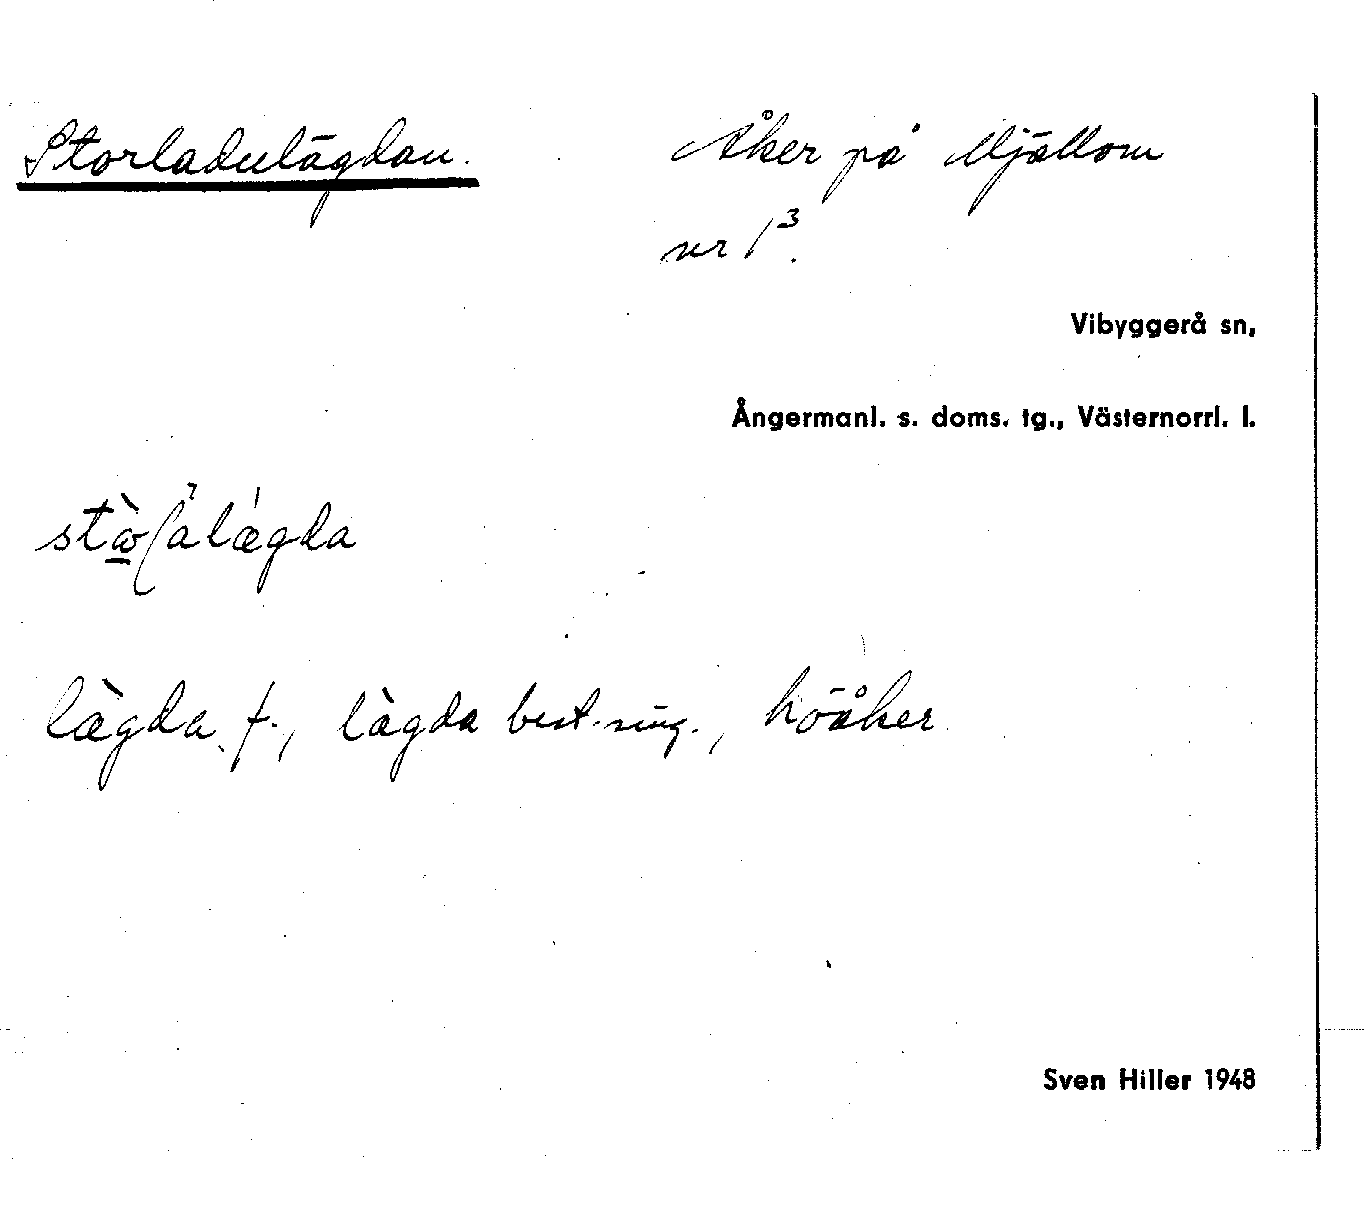 Storladulägdan. Åker på Mjällom
nr 1³.
Vibyggerå sn,
Ångermanl. s. doms. tg., Västernorrl. l.
lægda f., lægda best. sing., höåker
Sven Hiller 1948